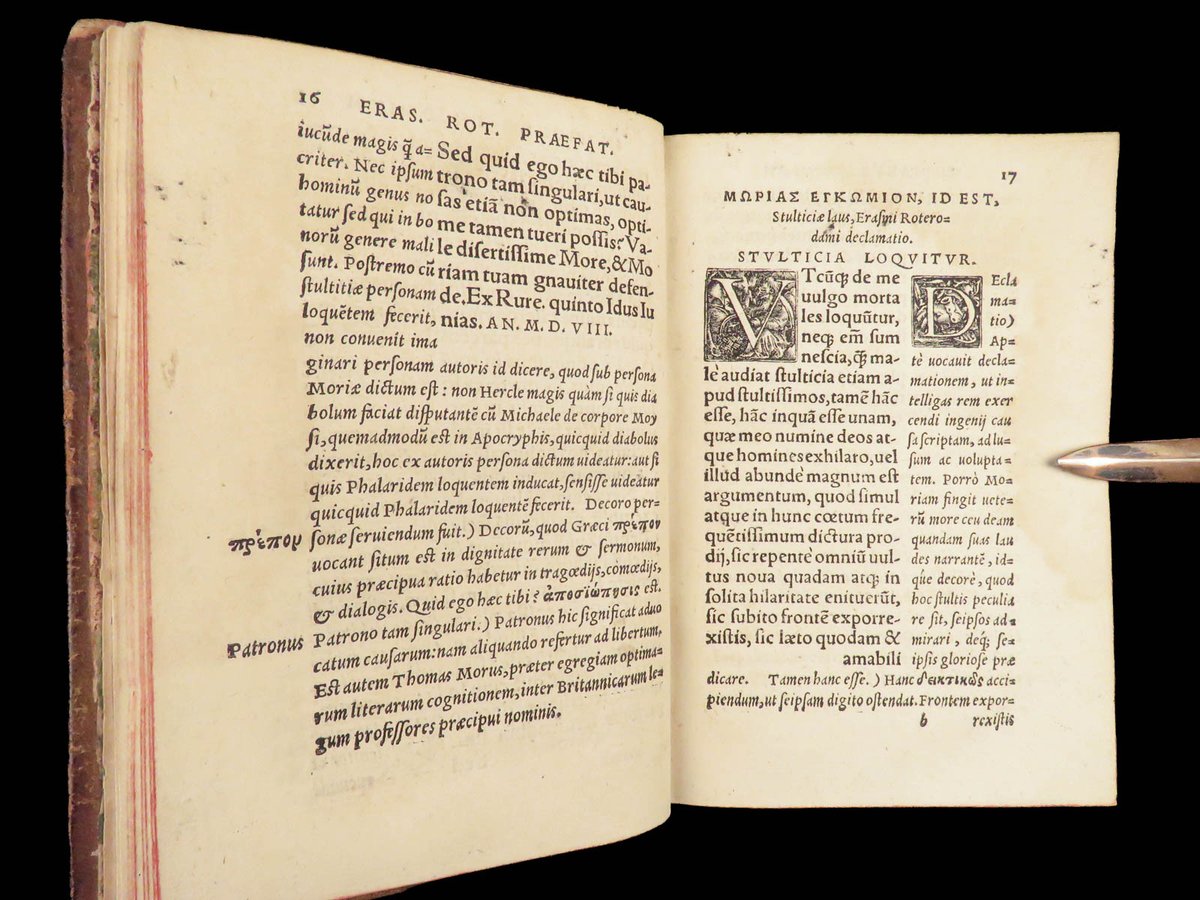 16 ERAS. ROT. PRAEFAT.
Sed quid ego hæc tibi pa-
trono tam singulari, ut cau-
sas etiã non optimas, opti-
me tamen tueri possis? Va-
le disertissime More, & Mo
riam tuam gnauiter defen-
de. Ex Rure. quinto Idus Iu
nias. AN. M. D. VIII.
iucũde magis q̃ a=
criter. Nec ipsum
hominũ genus no
tatur sed qui in bo
norũ genere mali
sunt. Postremo cũ
stultitiæ personam
loquẽtem fecerit,
non conuenit ima
ginari personam autoris id dicere, quod sub persona
Moriæ dictum est : non Hercle magis quàm si quis dia
bolum faciat disputantẽ cũ Michaele de corpore Moy
si, quemadmodũ est in Apocryphis, quicquid diabolus
dixerit, hoc ex autoris persona dictum uideatur: aut si
quis Phalaridem loquentem inducat, sensisse uideatur
quicquid Phalaridem loquentẽ fecerit. Decoro per=
πρέπον
sonæ seruiendum fuit.) Decorũ, quod Græci πρέπον
uocant situm est in dignitate rerum & sermonum,
cuius præcipua ratio habetur in tragœdijs, comœdijs,
& dialogis. Quid ego hæc tibi? ἀποσιώπησις est.
Patronus
Patrono tam singulari.) Patronus hic significat aduo
catum causarum: nam aliquando refertur ad libertum,
Est autem Thomas Morus, præter egregiam optima=
rum literarum cognitionem, inter Britannicarum le=
gum professores præcipui nominis.
17
ΜΩΡΙΑΣ ΕΓΚΩΜΙΟΝ, ID EST,
Stulticiæ laus, Erasmi Rotero=
dami declamatio.
STVLTICIA LOQVITVR.
VTcũq; de me
uulgo morta
les loquũtur,
neq; em̃ sum
nescia, q̃ ma-
lè audiat stulticia etiam a-
pud stultissimos, tamẽ hãc
esse, hãc inquã esse unam,
quæ meo numine deos at-
que homines exhilaro, uel
illud abundè magnum est
argumentum, quod simul
atque in hunc cœtum fre-
quẽtissimum dictura pro-
dij, sic repentè omniũ uul-
tus noua quadam atq; in
solita hilaritate enituerũt,
sic subito frontẽ exporre-
xistis, sic læto quodam &
amabili
DEcla
ma=
tio)
Ap=
tè uocauit decla=
mationem, ut in=
telligas rem exer
cendi ingenij cau
sa scriptam, ad lu=
sum ac uolupta=
tem. Porrò Mo=
riam fingit uete=
rũ more ceu deam
quandam suas lau
des narrantẽ, id=
q́ue decorè, quod
hoc stultis peculia
re sit, seipsos ad=
mirari, deq; se=
ipsis gloriose præ
dicare. Tamen hanc esse.) Hanc δεικτικῶς acci=
piendum, ut seipsam digito ostendat. Frontem expor=
b rexistis